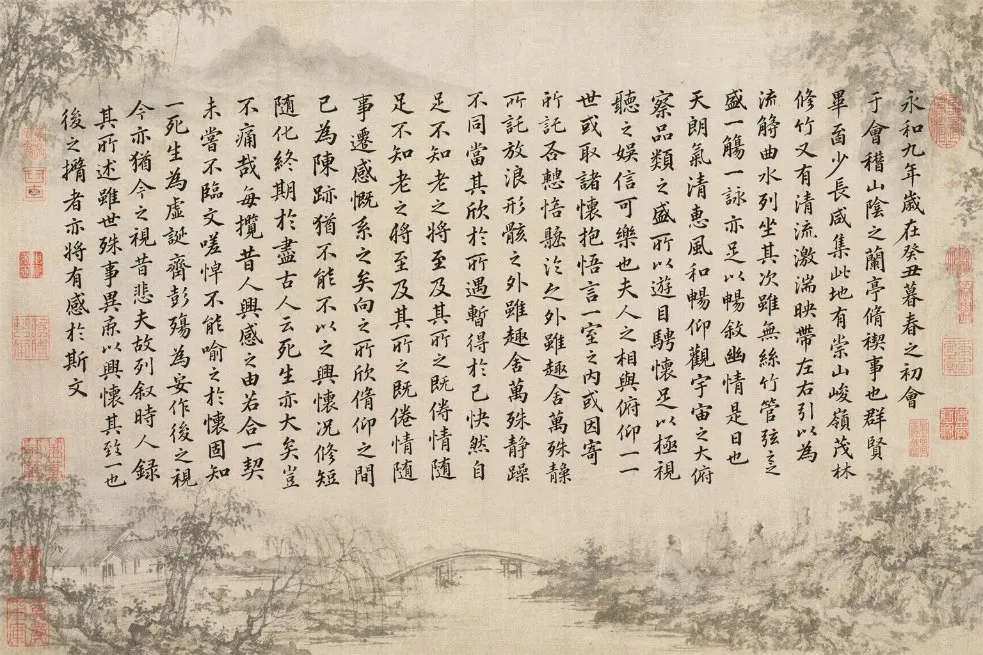 永和九年歲在癸丑暮春之初會
于會稽山陰之蘭亭脩禊事也群賢
畢面少長咸集此地有崇山峻嶺茂林
修竹又有清流激湍映帶左右引以為
流觴曲水列坐其次雖無絲竹管弦之
盛一觴一詠亦足以暢敘幽情是日也
天朗氣清惠風和暢仰觀宇宙之大俯
察品類之盛所以遊目騁懷足以極視
聽之娛信可樂也夫人之相與俯仰一一
世或取諸懷抱悟言一室之內或因寄
所託於之外雖趣舍萬殊靜
所託放浪形骸之外雖趣舍萬殊靜躁
不同當其欣於所遇暫得於己快然自
足不知老之將至及其所之既倦情隨
足不知老之將至及其所之既倦情隨
事遷感慨系之矣向之所欣俯仰之間
已為陳跡猶不能不以之興懷况修短
隨化終期於盡古人云死生亦大矣豈
不痛哉每攬昔人興感之由若合一契
未嘗不臨文嗟悼不能喻之於懷固知
一死生為虛誕齊彭殤為妄作後之視
今亦猶今之視昔悲夫故列叙時人錄
其所述雖世殊事異所以興懷其致一也
後之攬者亦將有感於斯文